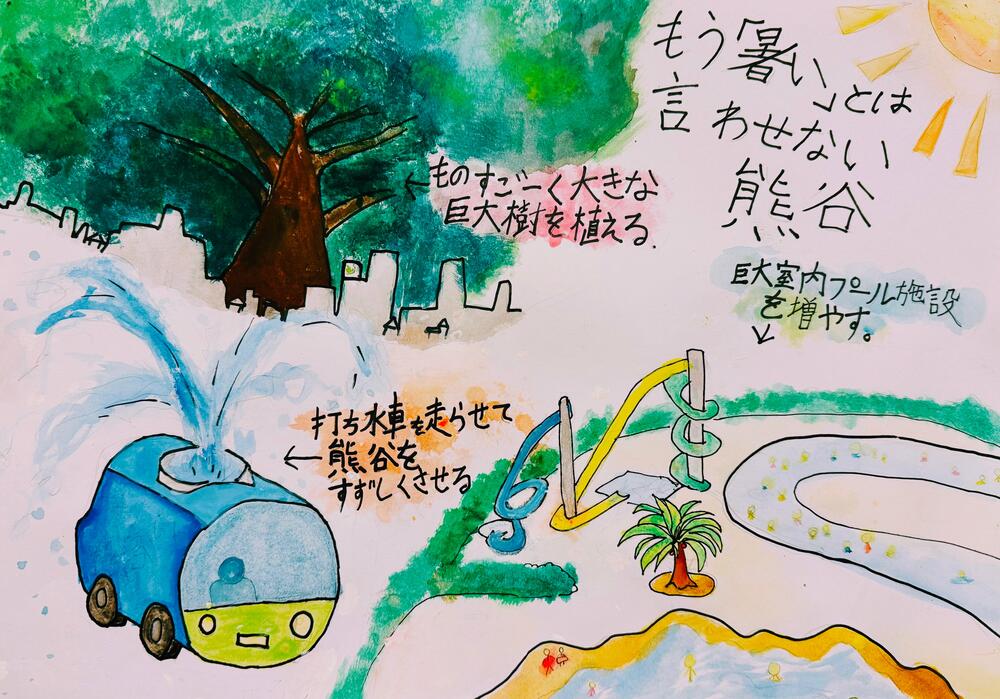 もう「暑い」とは
言わせない
熊谷
ものすごーく大きな
巨大樹を植える.
巨大室内プール施設
を増やす。
打ち水車を走らせて
熊谷を
すずしくさせる